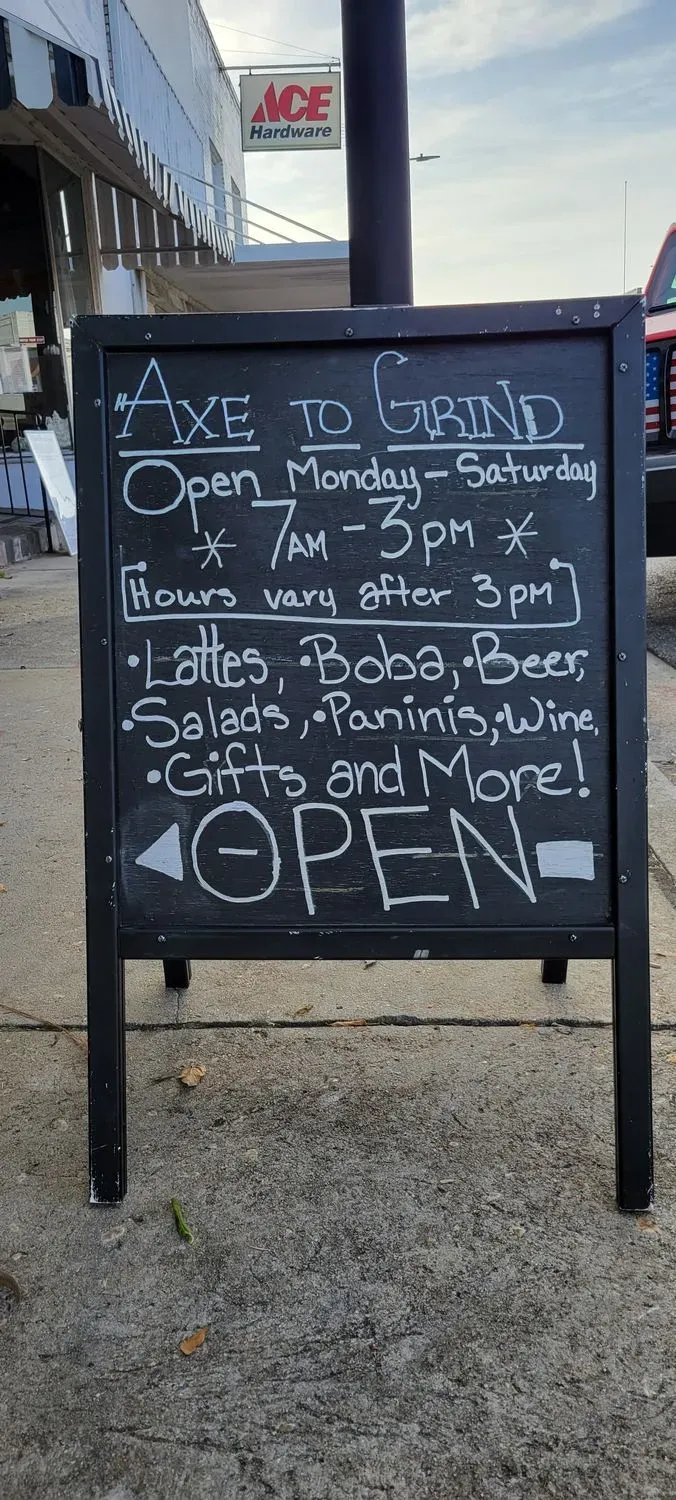 ACE
Hardware
"AXE TO GRIND
Open Monday-Saturday
* 7AM - 3pm *
[Hours vary after 3pm]
•Lattes, •Boba, •Beer,
•Salads, •Paninis, •Wine,
•Gifts and More!
OPEN